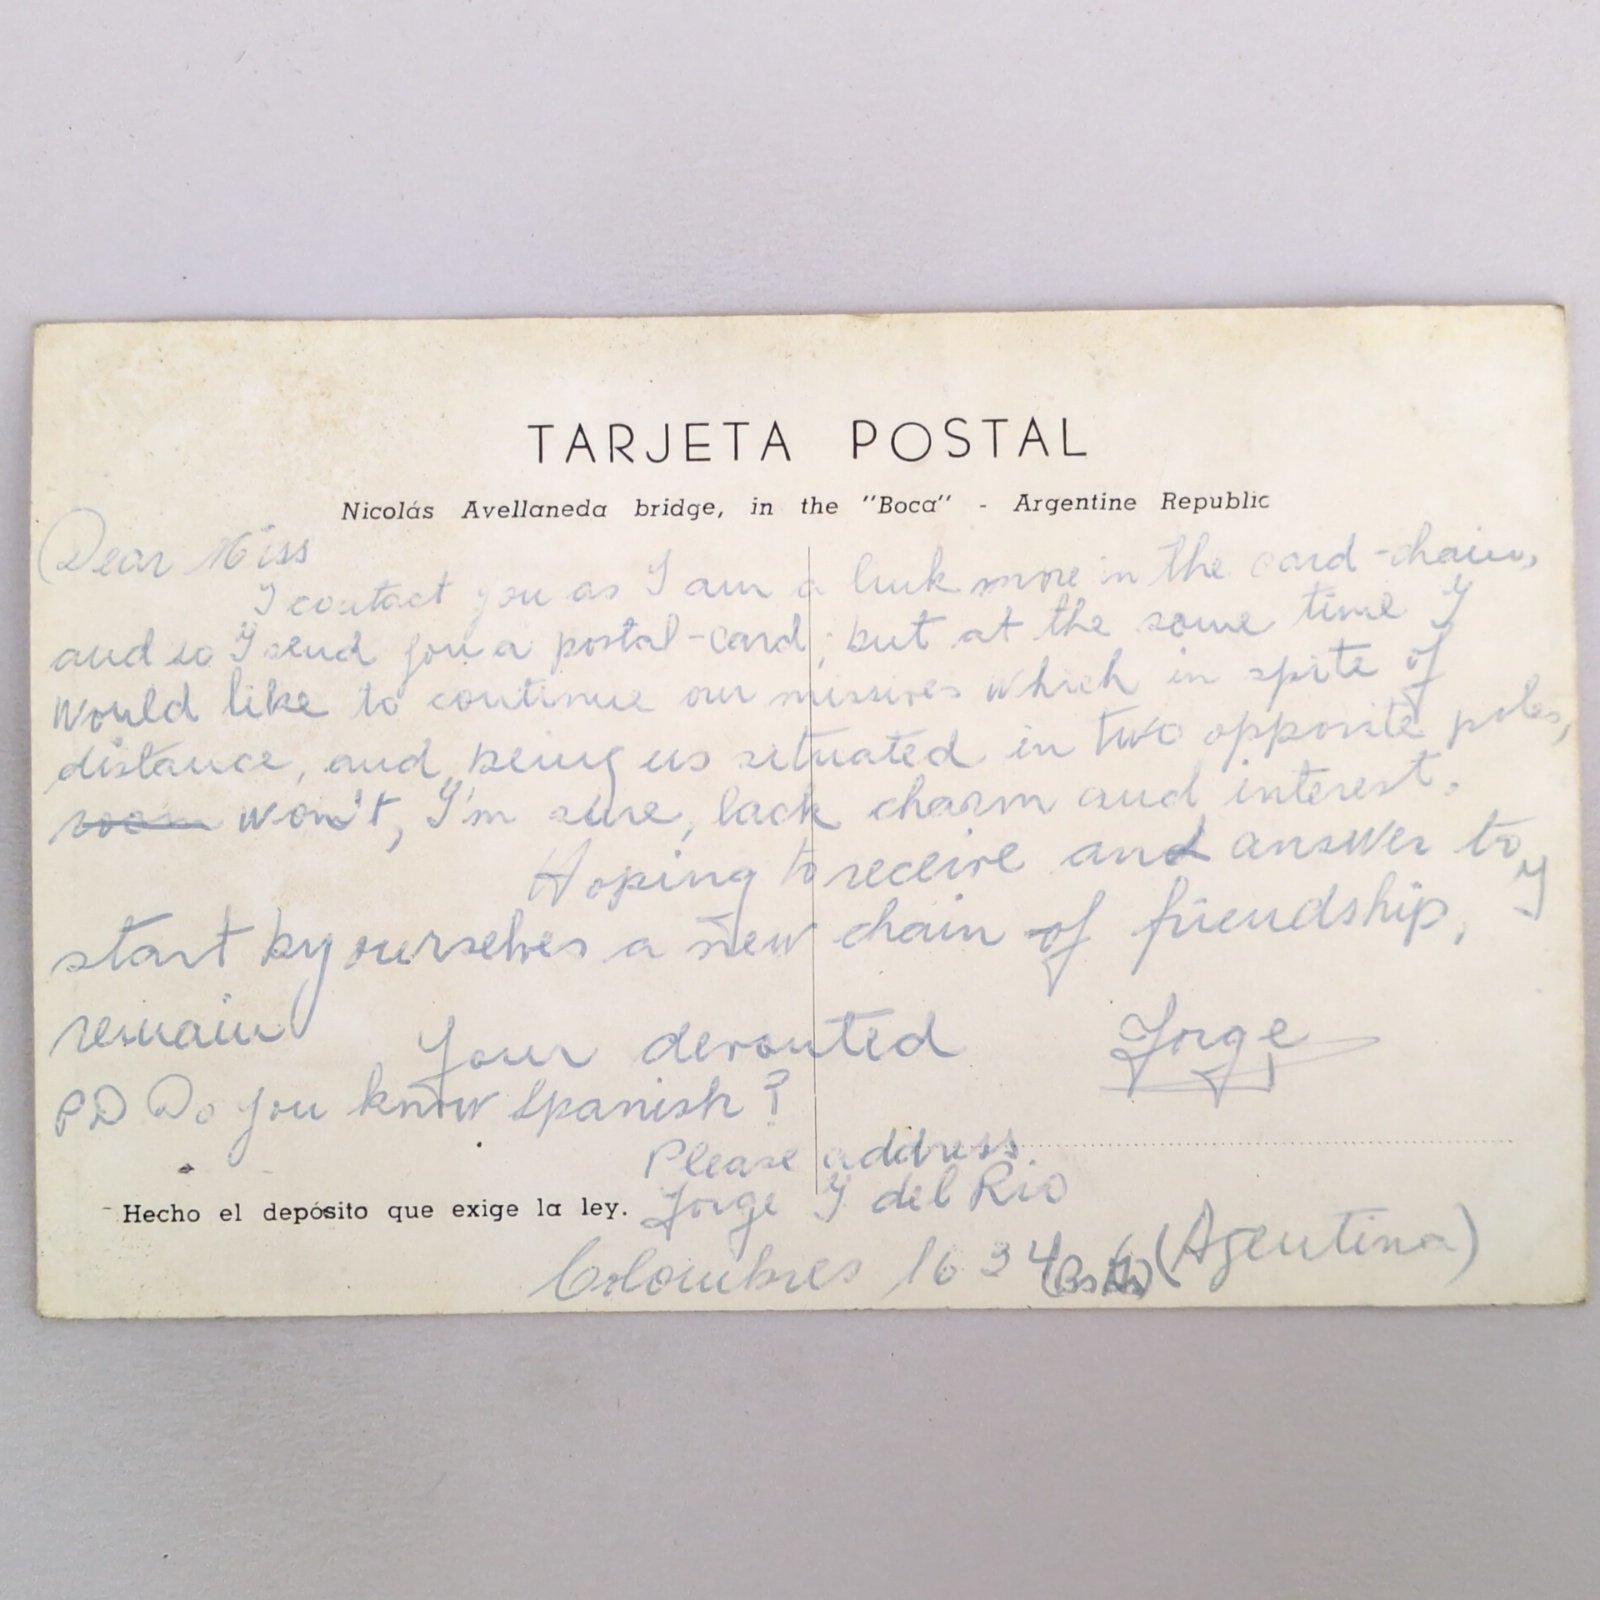 TARJETA POSTAL
Nicolás Avellaneda bridge, in the "Boca" - Argentine Republic
Dear Miss
I contact you as I am a link more in the card-chain,
and so I send you a postal-card; but at the same time I
would like to continue our missives which in spite of
distance, and being us situated in two opposite poles,
won't, I'm sure, lack charm and interest.
Hoping to receive and answer to
start by ourselves a new chain of friendship, I
remain
Your devouted Jorge
PD Do you know Spanish?
Please address
Jorge I del Rio
Hecho el depósito que exige la ley.
Colombres 1634 (Bs As) (Agentina)